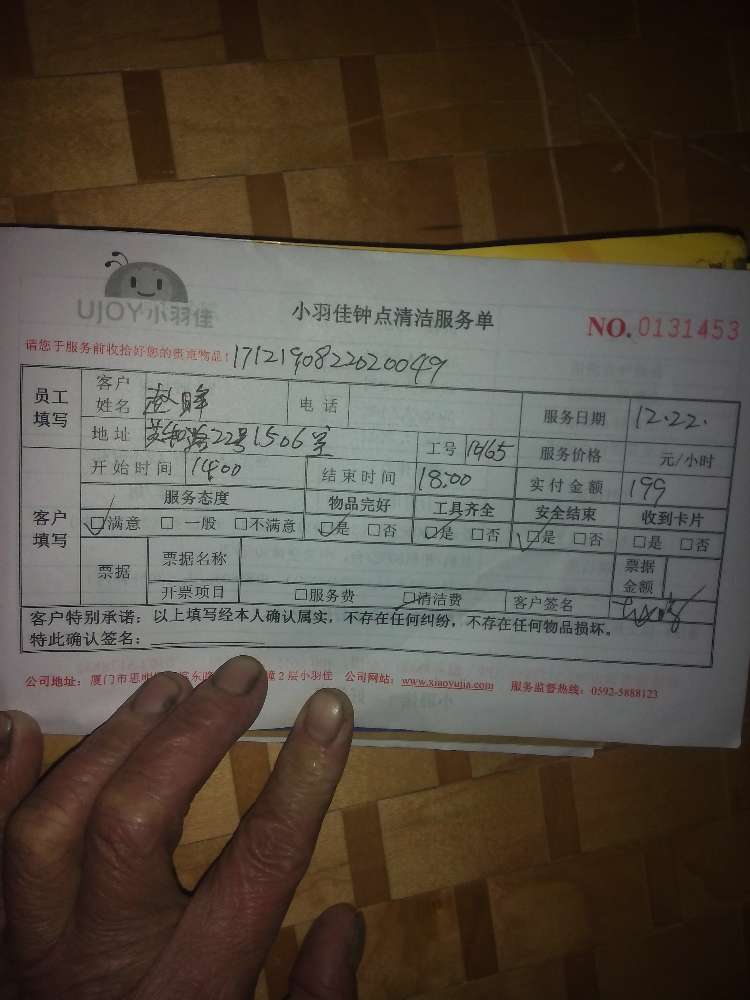 UJOY小羽佳
小羽佳钟点清洁服务单
NO. 0131453
请您于服务前收拾好您的贵重物品! 1712190822020049
员工填写 客户姓名 赵 电话 服务日期 12.22.
地址 22号1506室 工号 服务价格 元/小时
客户填写 开始时间 14:00 结束时间 18:00 实付金额 199
服务态度 物品完好 工具齐全 安全结束 收到卡片
☑满意 □一般 □不满意 ☑是 □否 ☑是 □否 ☑是 □否 □是 □否
票据 票据名称 票据金额
开票项目 □服务费 □清洁费 客户签名
客户特别承诺：以上填写经本人确认属实，不存在任何纠纷，不存在任何物品损坏。
特此确认签名：
公司地址：厦门市思明 东路 2层小羽佳 公司网站：www.xiaoyujia.com 服务监督热线：0592-5888123